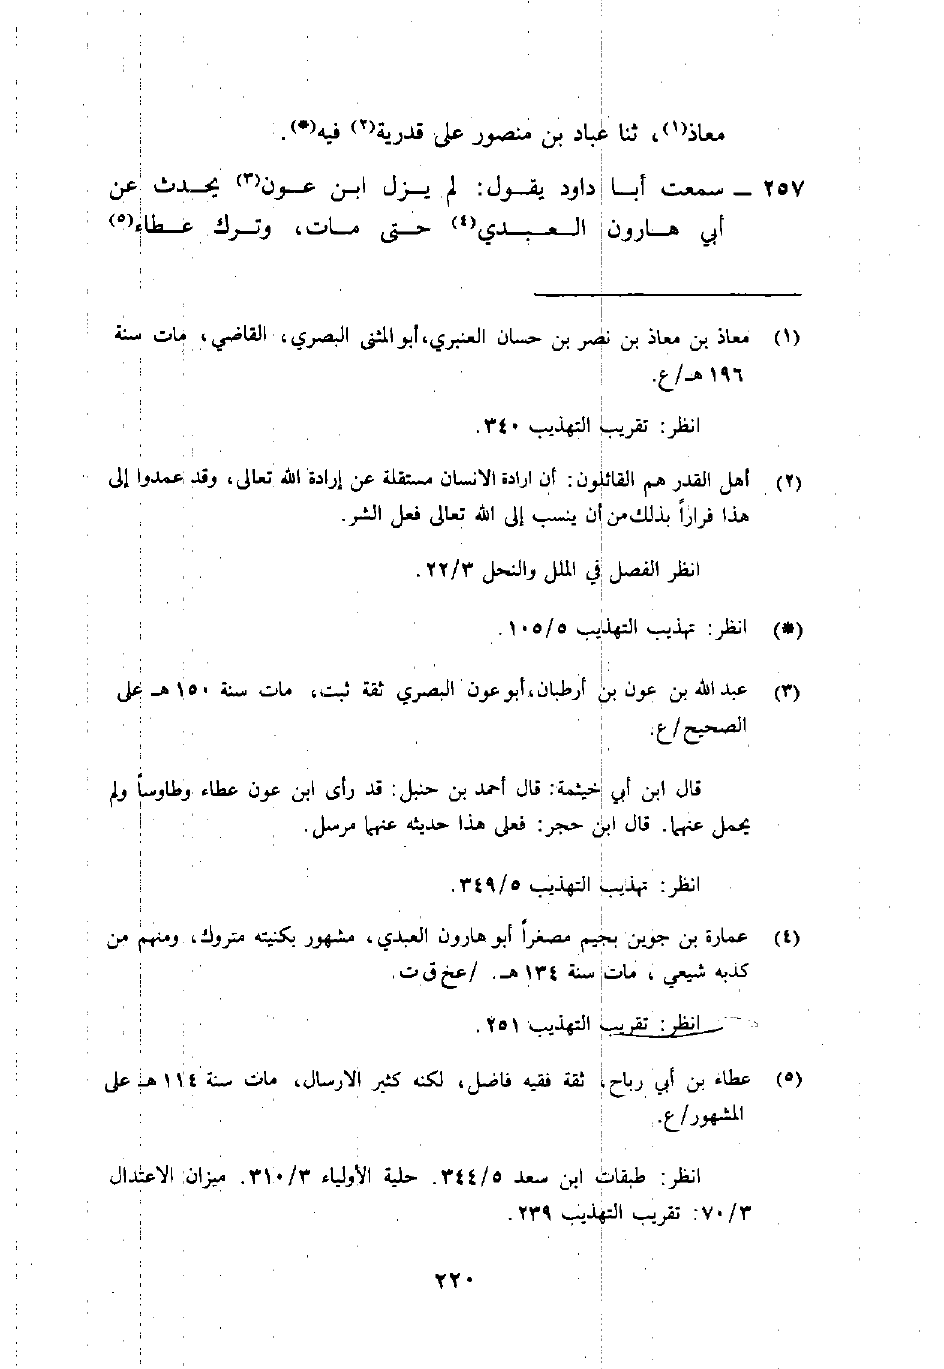 معاذ(١)، ثنا عباد بن منصور على قدرية(٢) فيه(*).
٢٥٧ ــ سمعت أبا داود يقول: لم يزل ابن عون(٣) يحدث عن
أبي هارون العبدي(٤) حتى مات، وترك عطاء(٥)
(١) معاذ بن معاذ بن نصر بن حسان العنبري، أبو المثنى البصري، القاضي، مات سنة
١٩٦ هـ/ع.
انظر: تقريب التهذيب ٣٤٠.
(٢) أهل القدر هم القائلون: أن ارادة الانسان مستقلة عن إرادة الله تعالى، وقد عمدوا إلى
هذا فراراً بذلك من أن ينسب إلى الله تعالى فعل الشر.
انظر الفصل في الملل والنحل ٢٢/٣.
(*) انظر: تهذيب التهذيب ١٠٥/٥.
(٣) عبد الله بن عون بن أرطبان، أبو عون البصري ثقة ثبت، مات سنة ١٥٠ هـ على
الصحيح/ع.
قال ابن أبي خيثمة: قال أحمد بن حنبل: قد رأى ابن عون عطاء وطاوساً ولم
يحمل عنهما. قال ابن حجر: فعلى هذا حديثه عنهما مرسل.
انظر: تهذيب التهذيب ٣٤٩/٥.
(٤) عمارة بن جوين بجيم مصغراً أبو هارون العبدي، مشهور بكنيته متروك، ومنهم من
كذبه شيعي، مات سنة ١٣٤ هـ. /عخ ق ت.
انظر: تقريب التهذيب ٢٥١.
(٥) عطاء بن أبي رباح، ثقة فقيه فاضل، لكنه كثير الارسال، مات سنة ١١٤ هـ على
المشهور/ع.
انظر: طبقات ابن سعد ٣٤٤/٥. حلية الأولياء ٣١٠/٣. ميزان الاعتدال
٧٠/٣: تقريب التهذيب ٢٣٩.
٢٢٠